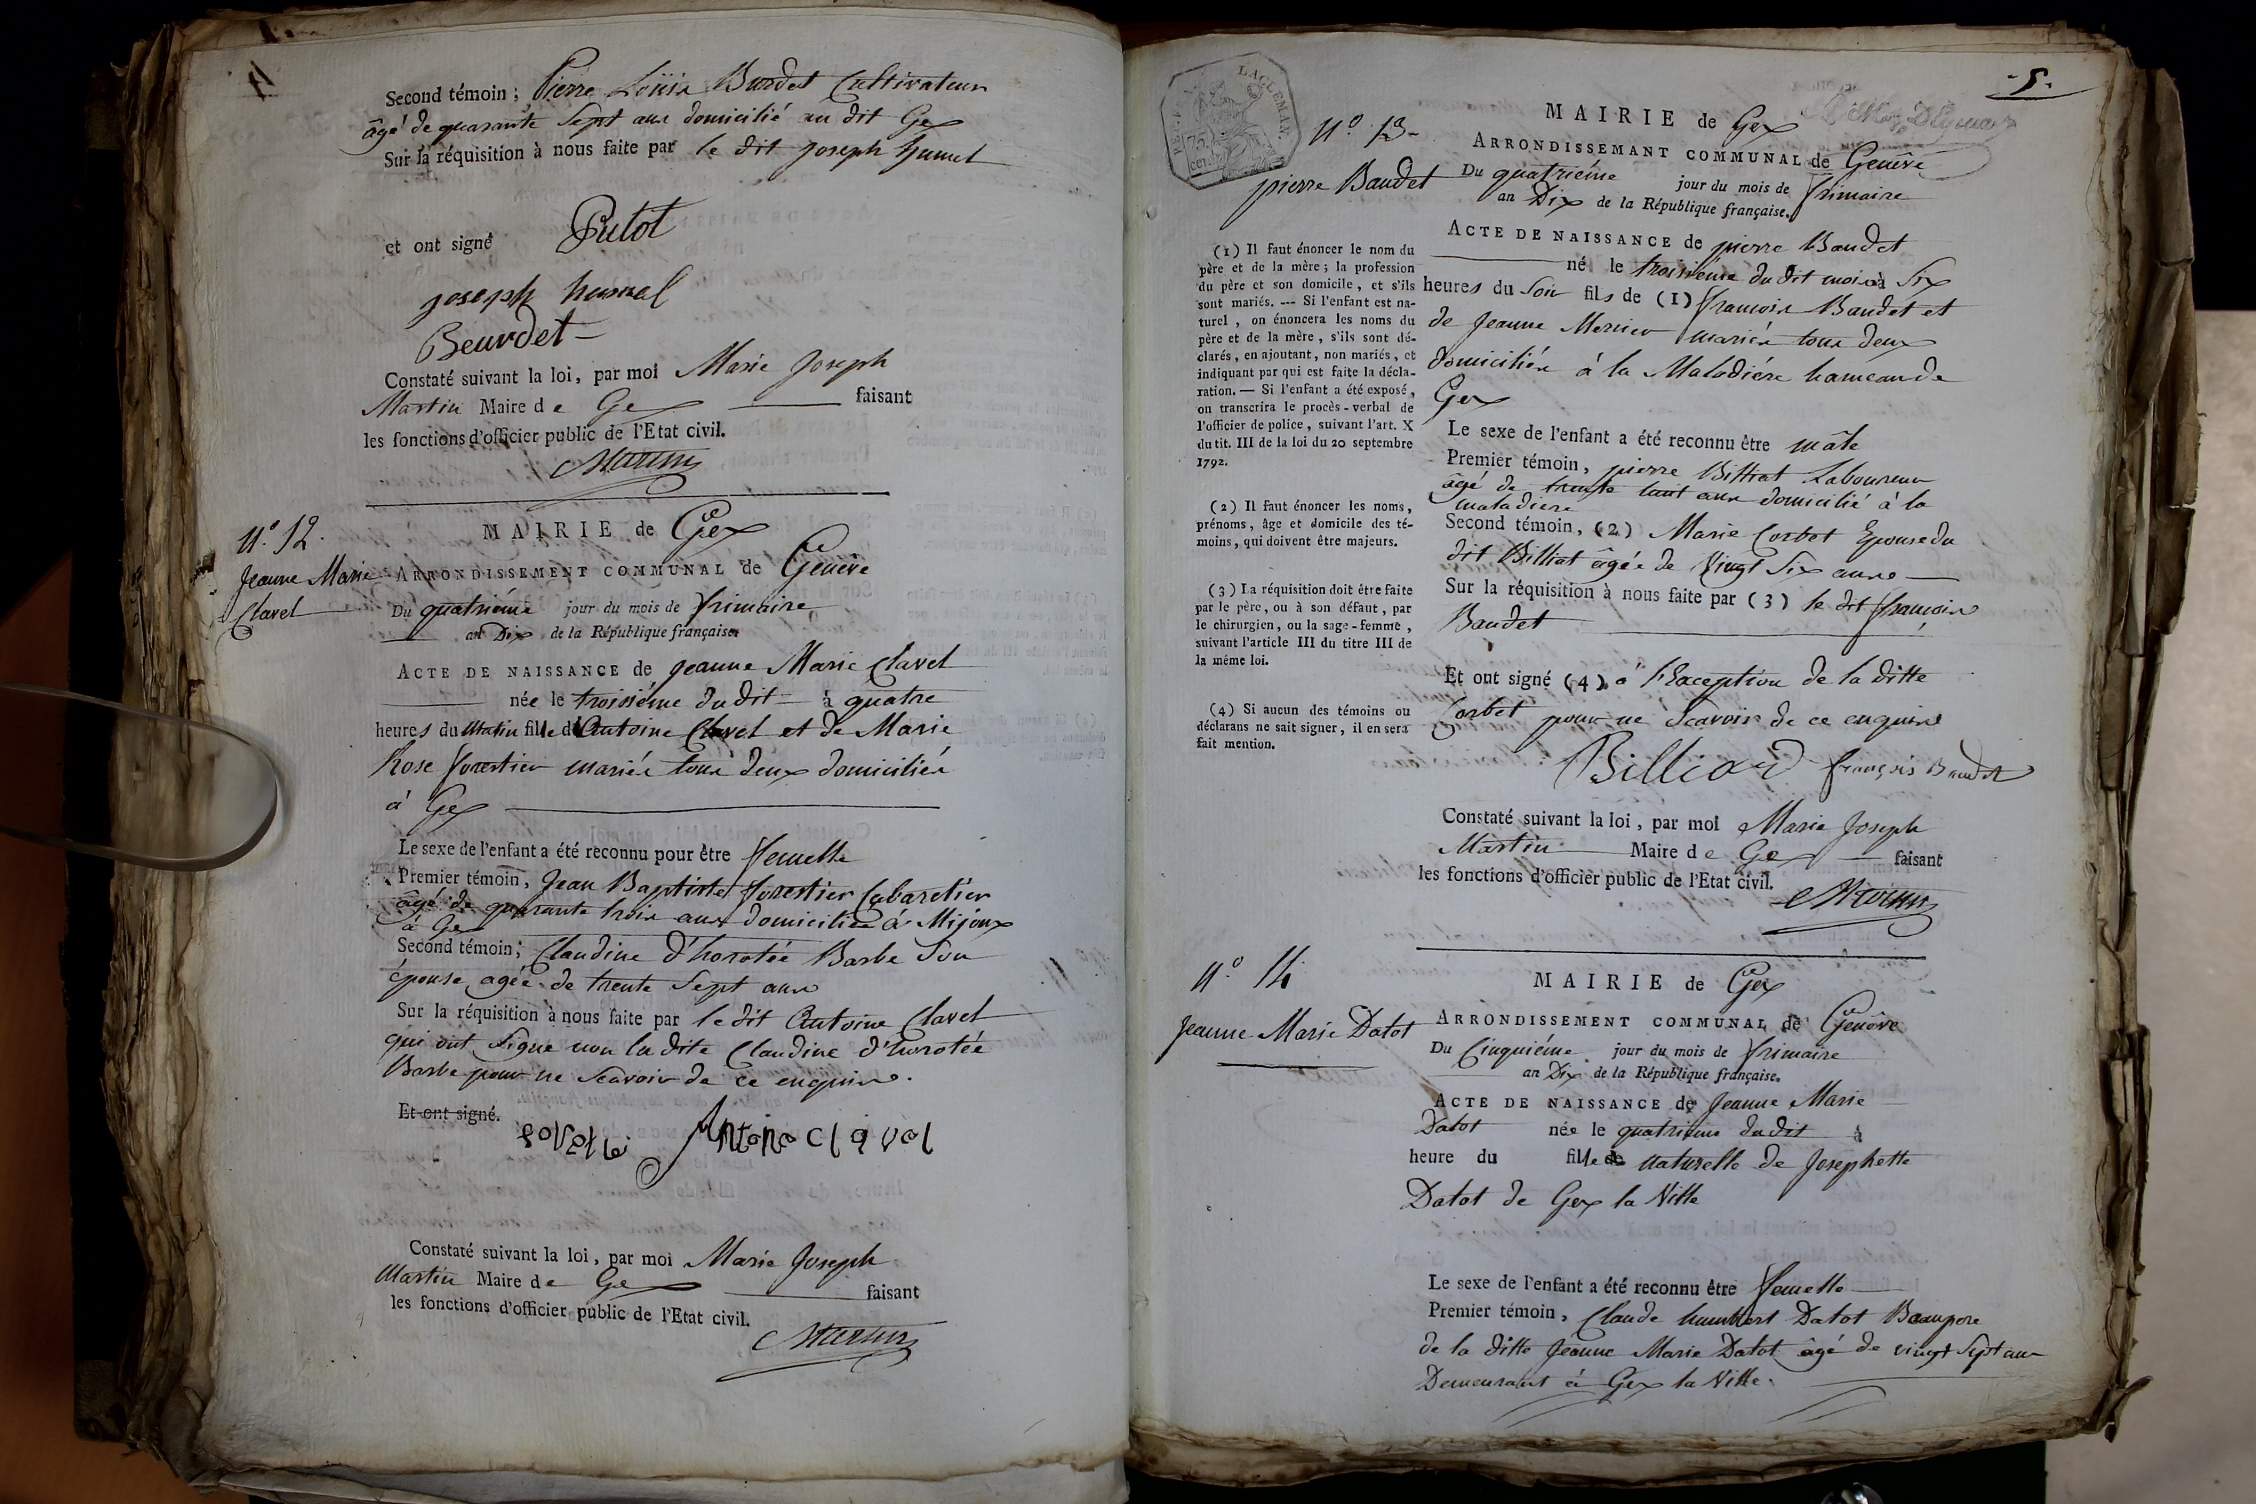 4
Second témoin ; Pierre Loüis Burdet Cultivateur
âgé de quarante Sept ans domicilié au dit Gex
Sur la réquisition à nous faite par le dit joseph humel
et ont signé Putot
joseph humel
Beurdet
Constaté suivant la loi, par moi Marie Joseph
Martin Maire de Gex faisant
les fonctions d'officier public de l'Etat civil.
Martin
N.° 12.
Jeanne Marie
Clavel
MAIRIE de Gex
ARRONDISSEMENT COMMUNAL de Genêve
Du quatriéme jour du mois de frimaire
an Dix de la République française.
ACTE DE NAISSANCE de jeanne Marie Clavel
née le troisiéme du dit à quatre
heures du Matin fille d'Antoine Clavel et de Marie
Rose forestier mariés tous deux domiciliés
à Gex
Le sexe de l'enfant a été reconnu pour être femelle
Premier témoin, Jean Baptiste forestier Cabaretier
âgé de quarante trois ans domiciliée à Mijoux
à Gex
Second témoin ; Claudine d'horotée Barbe Son
épouse agée de trente Sept ans
Sur la réquisition à nous faite par le dit Antoine Clavel
qui ont Signe non la dite Claudine d'horotée
Barbe pour ne Scavoir de ce enquise.
Et ont signé.
Antoine Claval
Constaté suivant la loi, par moi Marie Joseph
Martin Maire de Gex faisant
les fonctions d'officier public de l'Etat civil.
Martin
5.
75
cent.
N.° 13
pierre Baudet
MAIRIE de Gex
ARRONDISSEMANT COMMUNAL de Genêve
Du quatriéme jour du mois de frimaire
an Dix de la République française.
ACTE DE NAISSANCE de pierre Baudet
né le troisieme du dit mois à Six
heures du Soir fils de (1) francois Baudet et
de Jeanne Mernier mariés tous deux
domiciliés à la Maladiére hameau de
Gex
(1) Il faut énoncer le nom du
père et de la mère ; la profession
du père et son domicile, et s'ils
sont mariés. --- Si l'enfant est na-
turel, on énoncera les noms du
père et de la mère, s'ils sont dé-
clarés, en ajoutant, non mariés, et
indiquant par qui est faite la décla-
ration. — Si l'enfant a été exposé,
on transcrira le procès-verbal de
l'officier de police, suivant l'art. X
du tit. III de la loi du 20 septembre
1792.
Le sexe de l'enfant a été reconnu être mâle
Premier témoin, pierre Billiat Laboureur
âgé de trente huit ans domicilié à la
maladiere
(2) Il faut énoncer les noms,
prénoms, âge et domicile des té-
moins, qui doivent être majeurs.
Second témoin, (2) Marie Corbet Epouse du
dit Billiat âgée de Vingt Six anns
(3) La réquisition doit être faite
par le père, ou à son défaut, par
le chirurgien, ou la sage-femme,
suivant l'article III du titre III de
la même loi.
Sur la réquisition à nous faite par (3) le dit françois
Baudet
Et ont signé (4) à l'Exception de la ditte
Corbet pour ne Scavoir de ce enquise
(4) Si aucun des témoins ou
déclarans ne sait signer, il en sera
fait mention.
Billiad françois Baudet
Constaté suivant la loi, par moi Marie Joseph
Martin Maire de Gex faisant
les fonctions d'officier public de l'Etat civil.
Martin
N.° 14
Jeanne Marie Datot
MAIRIE de Gex
ARRONDISSEMENT COMMUNAL de Genêve
Du Cinquiéme jour du mois de frimaire
an Dix de la République française.
ACTE DE NAISSANCE de Jeanne Marie
Datot née le quatrieme du dit à
heure du fille naturelle de Josephette
Datot de Gex la Ville
Le sexe de l'enfant a été reconnu être femelle
Premier témoin, Claude humbert Datot Beaupere
de la ditte Jeanne Marie Datot âgé de vingt Sept ans
Demeurant à Gex la Ville.